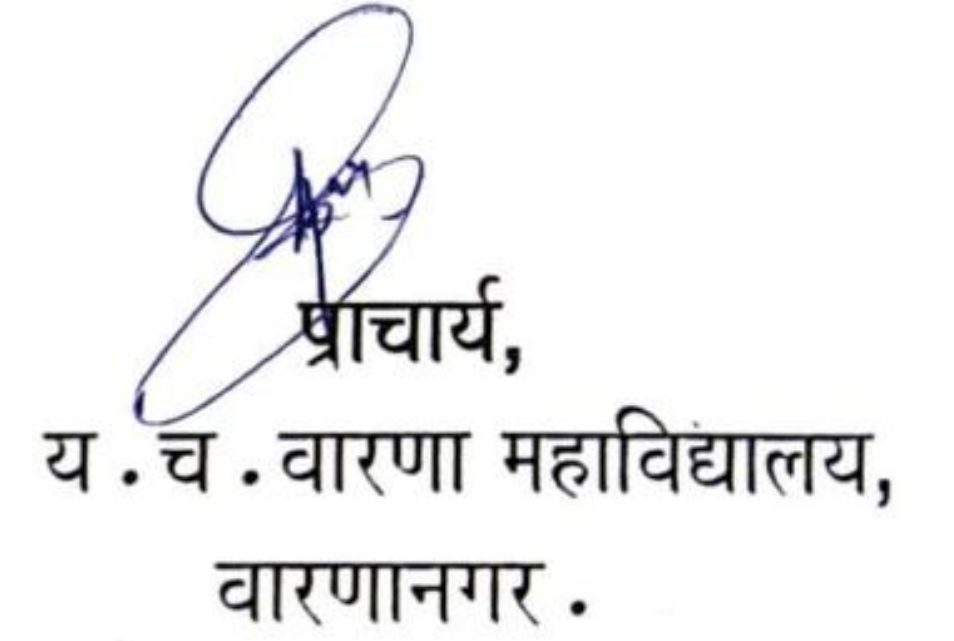 प्राचार्य,
य . च . वारणा महाविद्यालय,
वारणानगर .